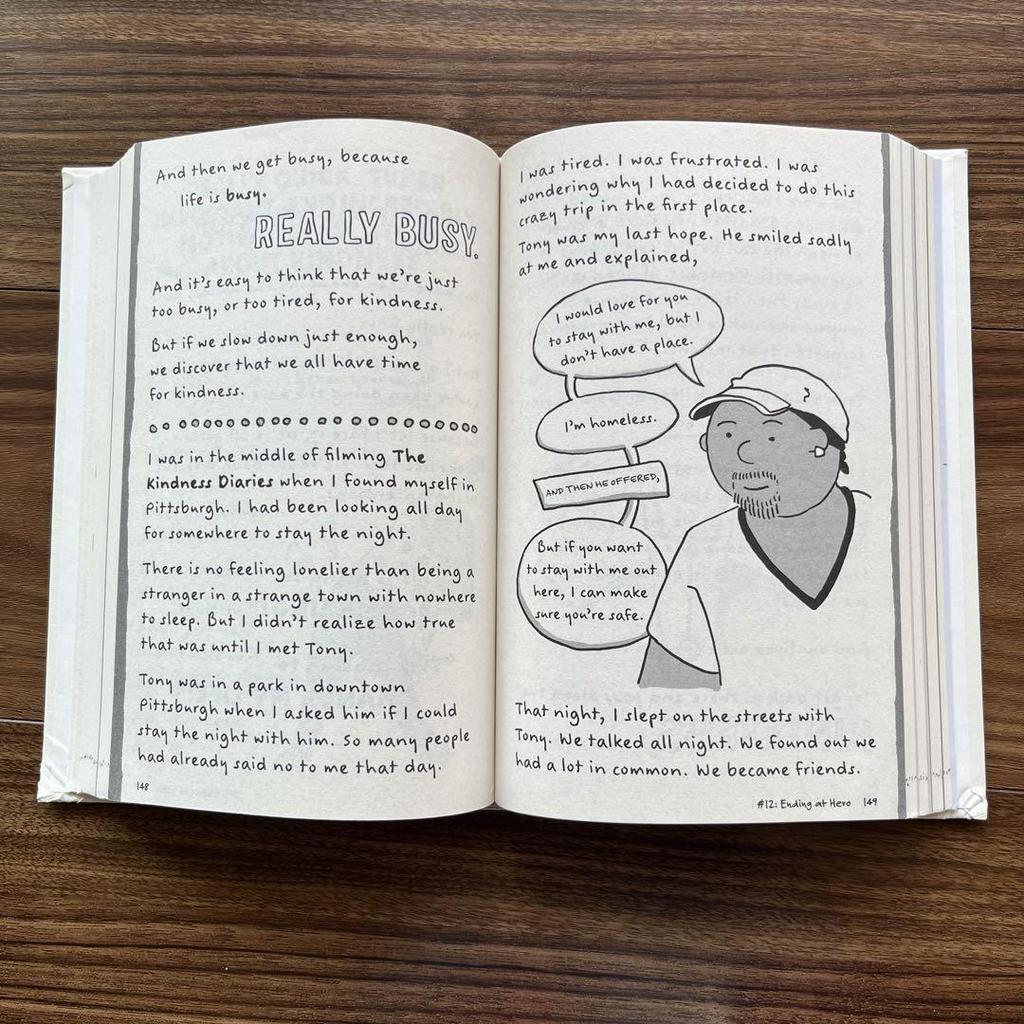 And then we get busy, because
life is busy.
REALLY BUSY.
And it's easy to think that we're just
too busy, or too tired, for kindness.
But if we slow down just enough,
we discover that we all have time
for kindness.
I was in the middle of filming The
Kindness Diaries when I found myself in
Pittsburgh. I had been looking all day
for somewhere to stay the night.
There is no feeling lonelier than being a
stranger in a strange town with nowhere
to sleep. But I didn't realize how true
that was until I met Tony.
Tony was in a park in downtown
Pittsburgh when I asked him if I could
stay the night with him. So many people
had already said no to me that day.
148
I was tired. I was frustrated. I was
wondering why I had decided to do this
crazy trip in the first place.
Tony was my last hope. He smiled sadly
at me and explained,
I would love for you
to stay with me, but I
don't have a place.
I'm homeless.
AND THEN HE OFFERED,
But if you want
to stay with me out
here, I can make
sure you're safe.
That night, I slept on the streets with
Tony. We talked all night. We found out we
had a lot in common. We became friends.
#12: Ending at Hero 149